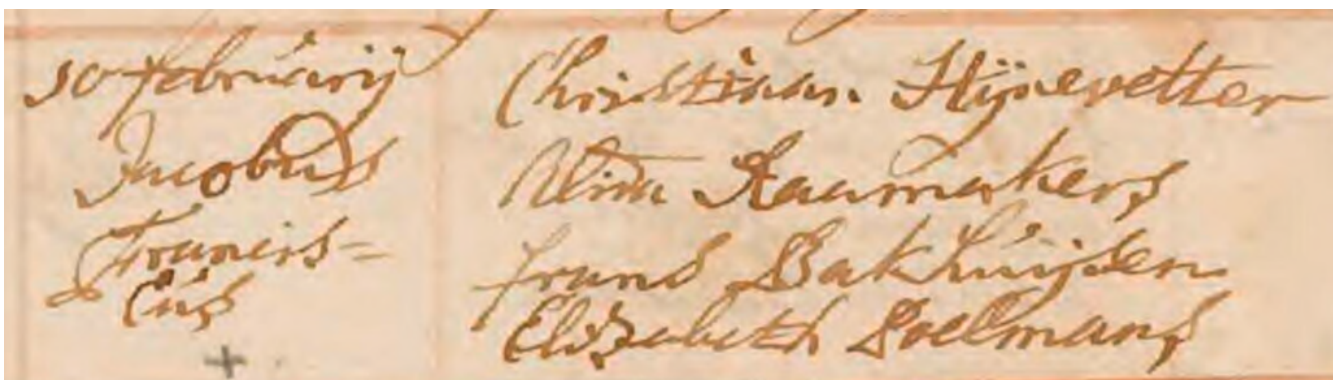 10 februarij
Jacobus
Francis-
cus
Christiaan Hijnevetter
Alida Raamakers
frans Bakhuijsen
Elizabeth Soelmans